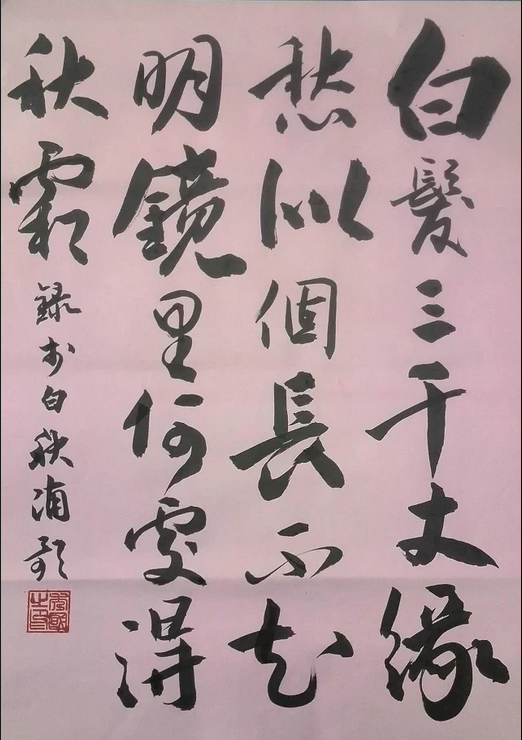 白髮三千丈緣
愁似個長不知
明鏡里何處得
秋霜 錄李白秋浦歌